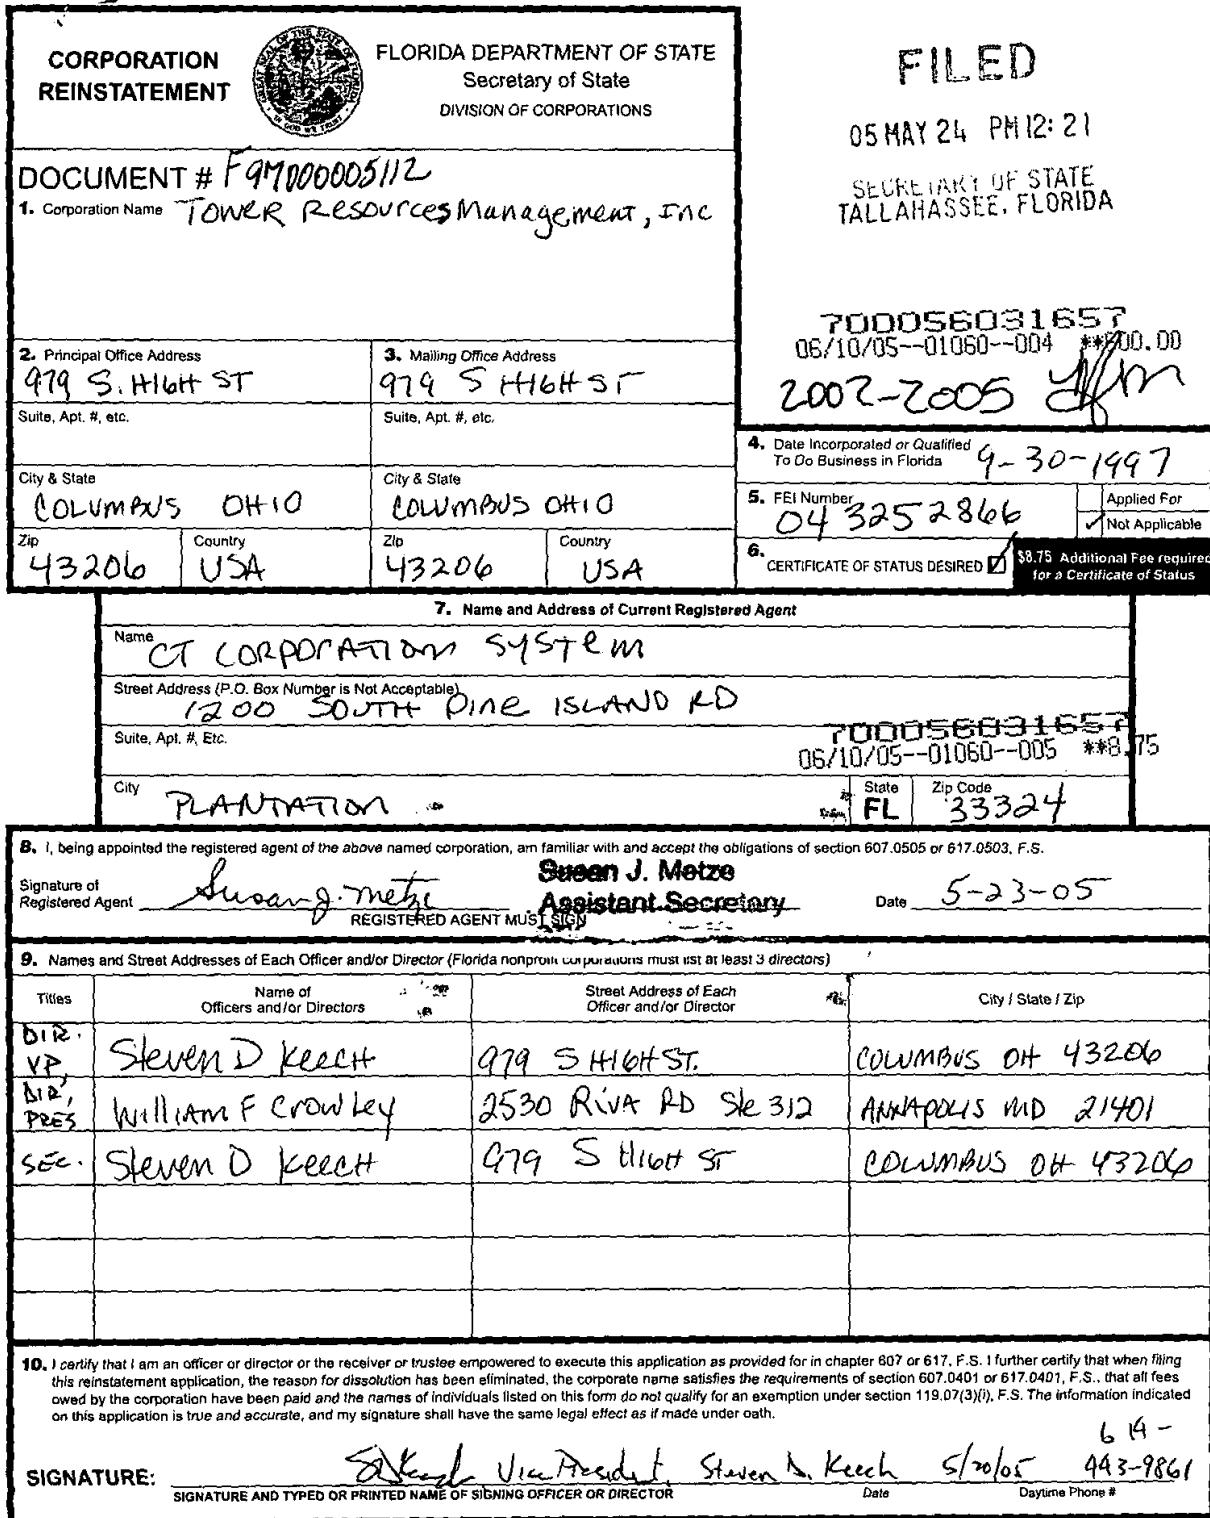 CORPORATION
REINSTATEMENT
FLORIDA DEPARTMENT OF STATE
Secretary of State
DIVISION OF CORPORATIONS
FILED
05 MAY 24 PM 12: 21
SECRETARY OF STATE
TALLAHASSEE, FLORIDA
DOCUMENT # F97000005112
1. Corporation Name TOWER Resources Management, Inc
700056031657
06/10/05--01060--004 **600.00
2002-2005
2. Principal Office Address
979 S. HIGH ST
3. Mailing Office Address
979 S HIGH ST
Suite, Apt. #, etc.
Suite, Apt. #, etc.
4. Date Incorporated or Qualified
To Do Business in Florida 9-30-1997
City & State
COLUMBUS OHIO
City & State
COLUMBUS OHIO
5. FEI Number
04 3252866
Applied For
Not Applicable
Zip
43206
Country
USA
Zip
43206
Country
USA
6. CERTIFICATE OF STATUS DESIRED
$8.75 Additional Fee required
for a Certificate of Status
7. Name and Address of Current Registered Agent
Name
CT CORPORATION SYSTEM
Street Address (P.O. Box Number is Not Acceptable)
1200 SOUTH Pine ISLAND RD
Suite, Apt. #, Etc.
700056031657
06/10/05--01060--005 **8.75
City
PLANTATION
State
FL
Zip Code
33324
8. I, being appointed the registered agent of the above named corporation, am familiar with and accept the obligations of section 607.0505 or 617.0503, F.S.
Signature of
Registered Agent Susan J. Metze
Susan J. Metze
Assistant Secretary
Date 5-23-05
REGISTERED AGENT MUST SIGN
9. Names and Street Addresses of Each Officer and/or Director (Florida nonprofit corporations must list at least 3 directors)
Titles
Name of
Officers and/or Directors
Street Address of Each
Officer and/or Director
City / State / Zip
DIR.
VP, Steven D KeecH 979 S HIGH ST. COLUMBUS OH 43206
DIR,
PRES William F Crowley 2530 Riva RD Ste 312 ANNAPOLIS MD 21401
SEC. Steven D KeecH 979 S HIGH ST COLUMBUS OH 43206
10. I certify that I am an officer or director or the receiver or trustee empowered to execute this application as provided for in chapter 607 or 617, F.S. I further certify that when filing
this reinstatement application, the reason for dissolution has been eliminated, the corporate name satisfies the requirements of section 607.0401 or 617.0401, F.S., that all fees
owed by the corporation have been paid and the names of individuals listed on this form do not qualify for an exemption under section 119.07(3)(i), F.S. The information indicated
on this application is true and accurate, and my signature shall have the same legal effect as if made under oath.
614-
SIGNATURE: Vice President, Steven D. Keech 5/20/05 443-9861
SIGNATURE AND TYPED OR PRINTED NAME OF SIGNING OFFICER OR DIRECTOR Date Daytime Phone #